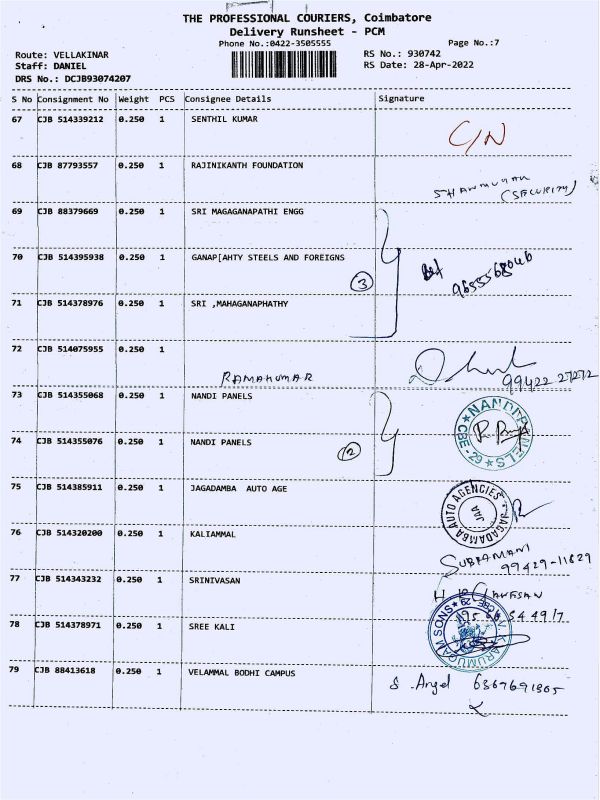 THE PROFESSIONAL COURIERS, Coimbatore
Delivery Runsheet - PCM
Phone No.:0422-3505555
Page No.:7
Route: VELLAKINAR
RS No.: 930742
Staff: DANIEL
RS Date: 28-Apr-2022
DRS No.: DCJB93074207
S No Consignment No Weight PCS Consignee Details Signature
67 CJB 514339212 0.250 1 SENTHIL KUMAR
C/N
68 CJB 87793557 0.250 1 RAJINIKANTH FOUNDATION
(SECURITY)
69 CJB 88379669 0.250 1 SRI MAGAGANAPATHI ENGG
70 CJB 514395938 0.250 1 GANAP[AHTY STEELS AND FOREIGNS
3
9655568046
71 CJB 514378976 0.250 1 SRI ,MAHAGANAPHATHY
72 CJB 514075955 0.250 1
RAMAKUMAR
99422 27272
73 CJB 514355068 0.250 1 NANDI PANELS
NANDI PANELS
CBE-29
74 CJB 514355076 0.250 1 NANDI PANELS
2
75 CJB 514385911 0.250 1 JAGADAMBA AUTO AGE
JAGADAMBA AUTO AGENCIES
JAA
76 CJB 514320200 0.250 1 KALIAMMAL
SUBRAMANI
99429-11829
77 CJB 514343232 0.250 1 SRINIVASAN
78 CJB 514378971 0.250 1 SREE KALI
V. ARUMUGAM SONS
CBE 29
79 CJB 88413618 0.250 1 VELAMMAL BODHI CAMPUS
S. Angel 6369691805